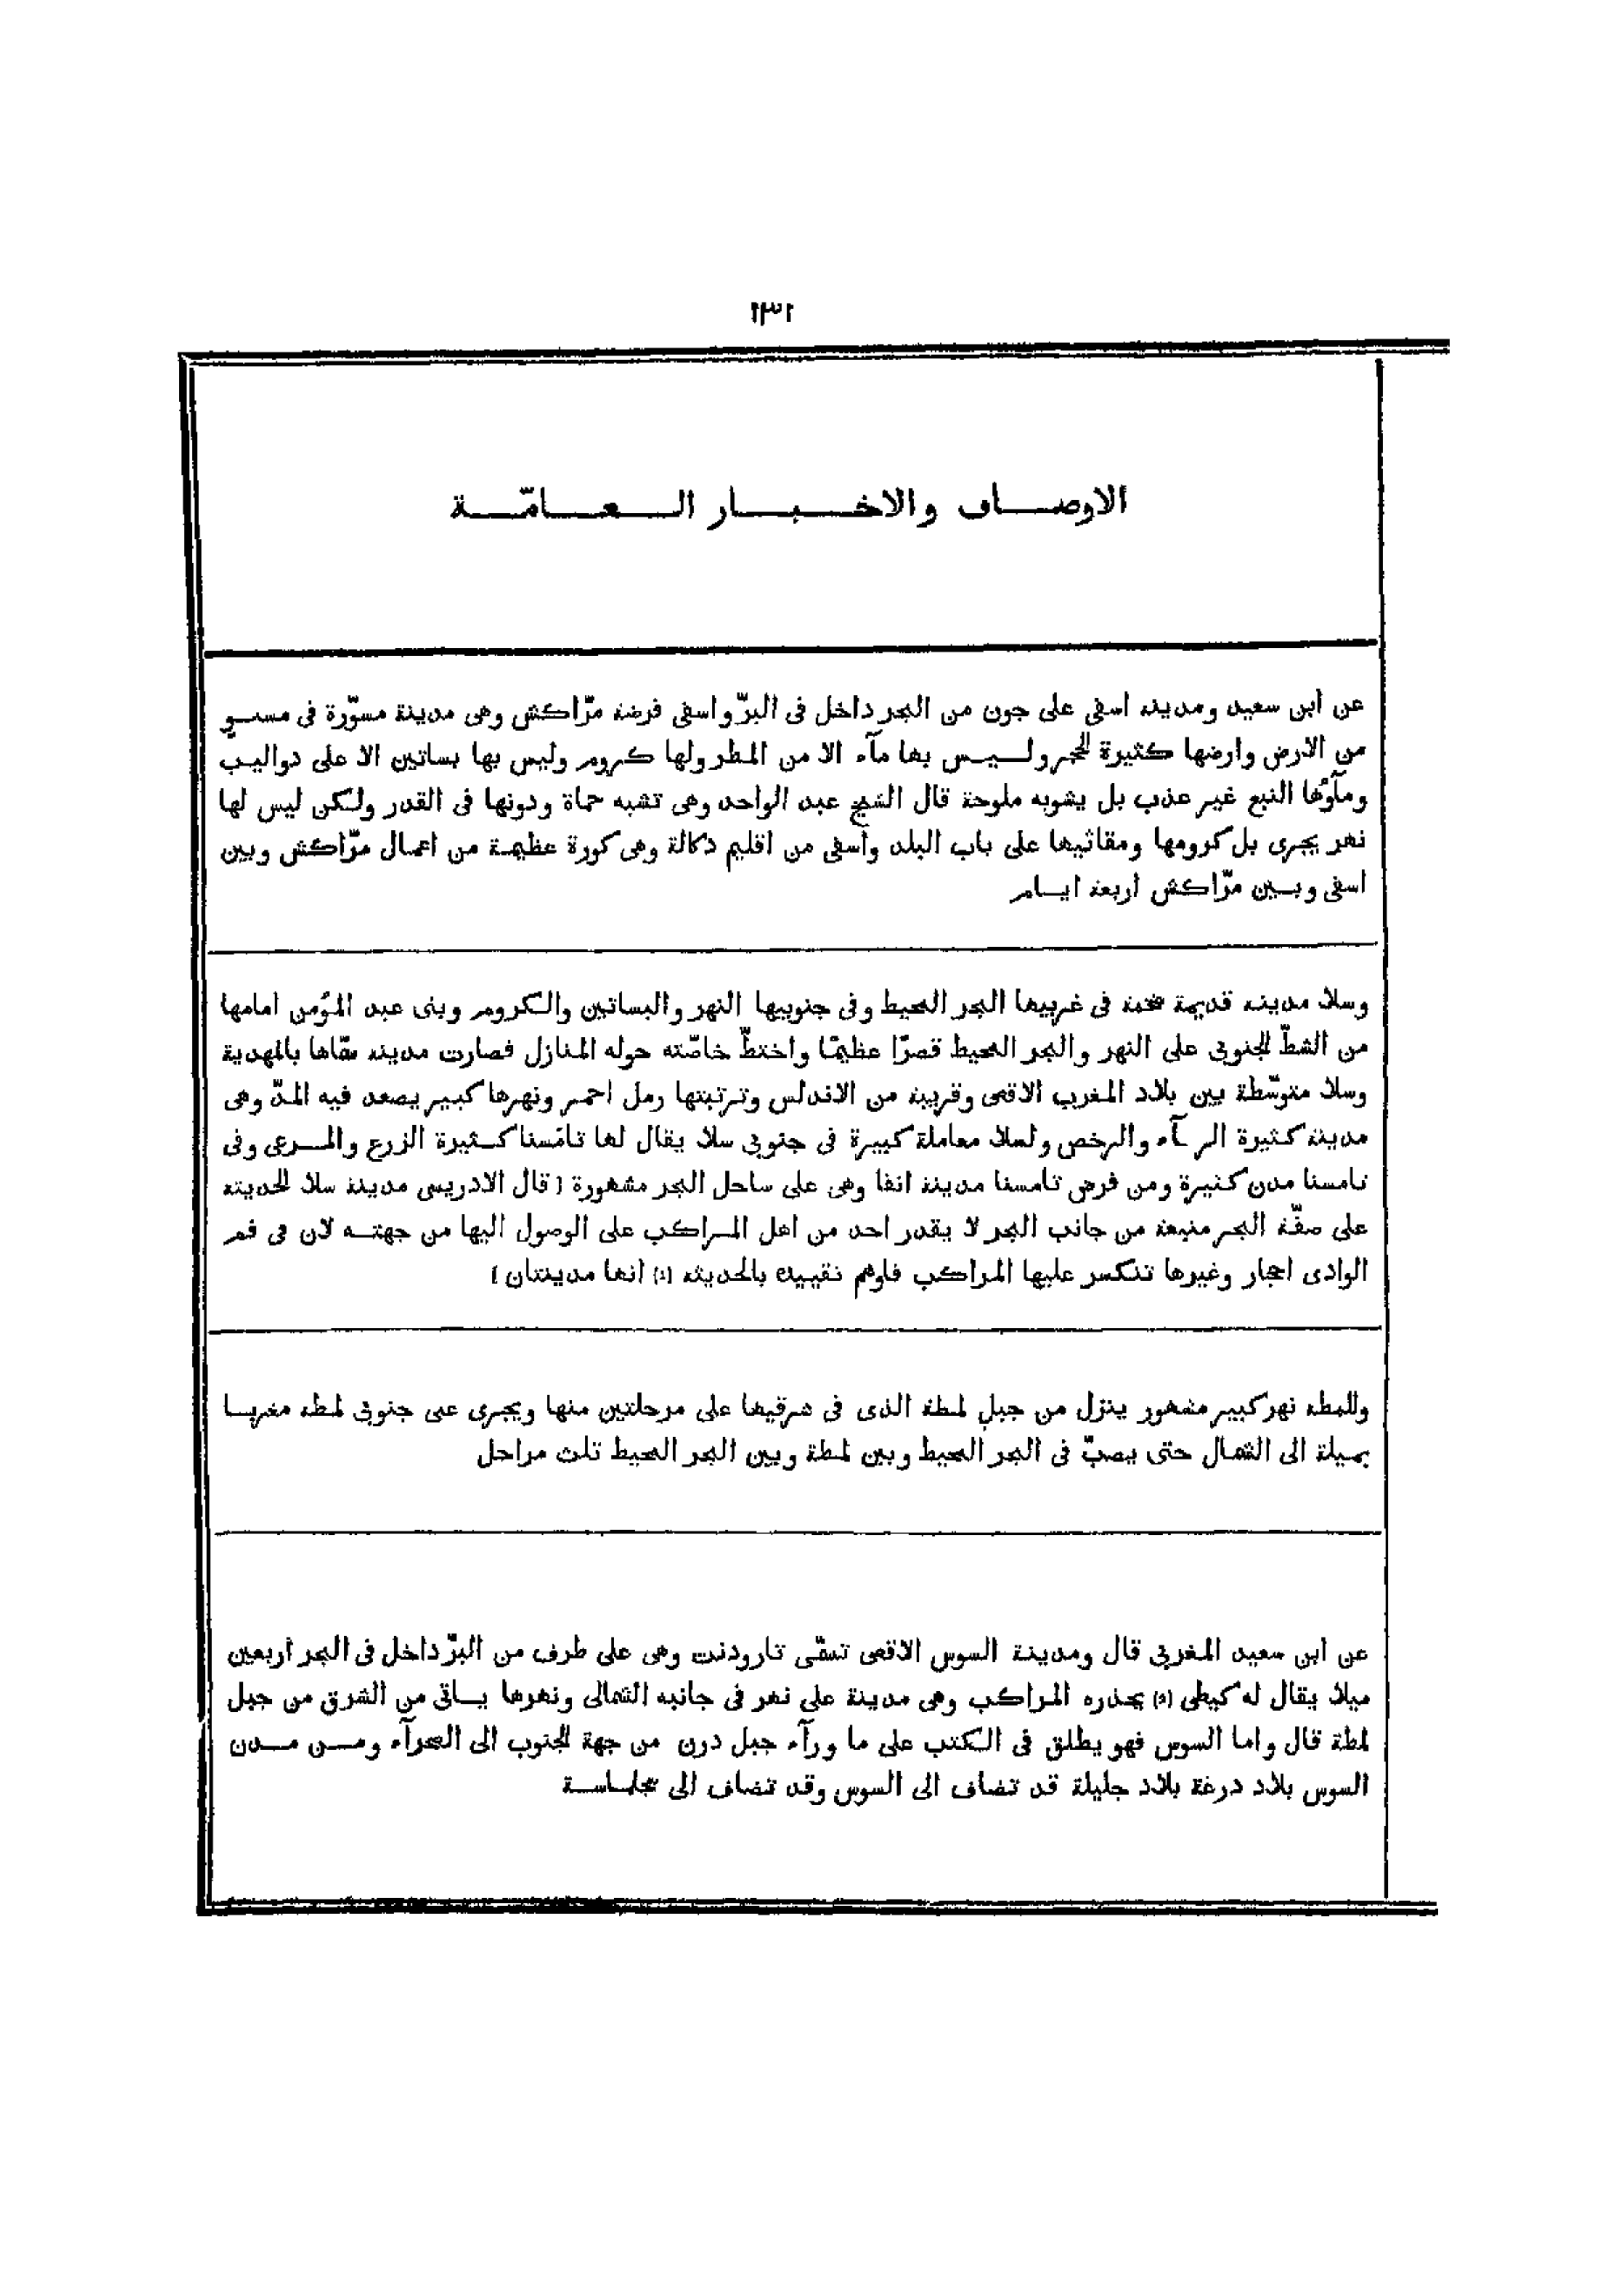 ١٣١
الاوصاف والاخبار العامّة
عن ابن سعيد ومدينة اسفى على جون من البحر داخل فى البرّ واسفى فرضة مرّاكش وهى مدينة مسوّرة فى مستوٍ
من الارض وارضها كثيرة الحجر وليس بها مآء الا من المطر ولها كروم وليس بها بساتين الا على دواليب
ومآوُها النبع غير عذب بل يشوبه ملوحة قال الشيخ عبد الواحد وهى تشبه حماة ودونها فى القدر ولكن ليس لها
نهر يجرى بل كرومها ومقاثيها على باب البلد وآسفى من اقليم دكالة وهى كورة عظيمة من اعمال مرّاكش وبين
اسفى وبين مرّاكش اربعة ايام
وسلا مدينة قديمة ضخمة فى غربيها البحر المحيط وفى جنوبيها النهر والبساتين والكروم وبنى عبد المؤمن امامها
من الشطّ الجنوبى على النهر والبحر المحيط قصرًا عظيمًا واختطّ خاصّته حوله المنازل فصارت مدينة سمّاها بالمهدية
وسلا متوسّطة بين بلاد المغرب الاقصى وقريبة من الاندلس وتربتها رمل احمر ونهرها كبير يصعد فيه المدّ وهى
مدينة كثيرة والرخص ولسلا معاملة كبيرة فى جنوبى سلا يقال لها تامَسنا كثيرة الزرع والمرعى وفى
تامسنا مدن كثيرة ومن فرض تامسنا مدينة انفا وهى على ساحل البحر مشهورة [ قال الادريسى مدينة سلا الحديثة
على ضفّة البحر منيعة من جانب البحر لا يقدر احد من اهل المراكب على الوصول اليها من جهته لان فى فم
الوادى احجار وغيرها تنكسر عليها المراكب فاوهم تقييده بالحديثة (١) انها مدينتان ]
وللمطة نهر كبير مشهور ينزل من جبل لمطة الذى فى شرقيها على مرحلتين منها ويجرى على جنوبى لمطة مغربا
بميلة الى الشمال حتى يصبّ فى البحر المحيط وبين لمطة وبين البحر المحيط ثلث مراحل
عن ابن سعيد المغربى قال ومدينة السوس الاقصى تسمّى تارودنت وهى على طرف من البرّ داخل فى البحر اربعين
ميلا يقال له كيطى يحذره المراكب وهى مدينة على نهر فى جانبه الشمالى ونهرها ياتى من الشرق من جبل
لمطة قال واما السوس فهو يطلق فى الكتب على ما ورآء جبل درن من جهة الجنوب الى الصحرآء ومن مدن
السوس بلاد درغة بلاد جليلة قد تضاف الى السوس وقد تضاف الى سجلماسة